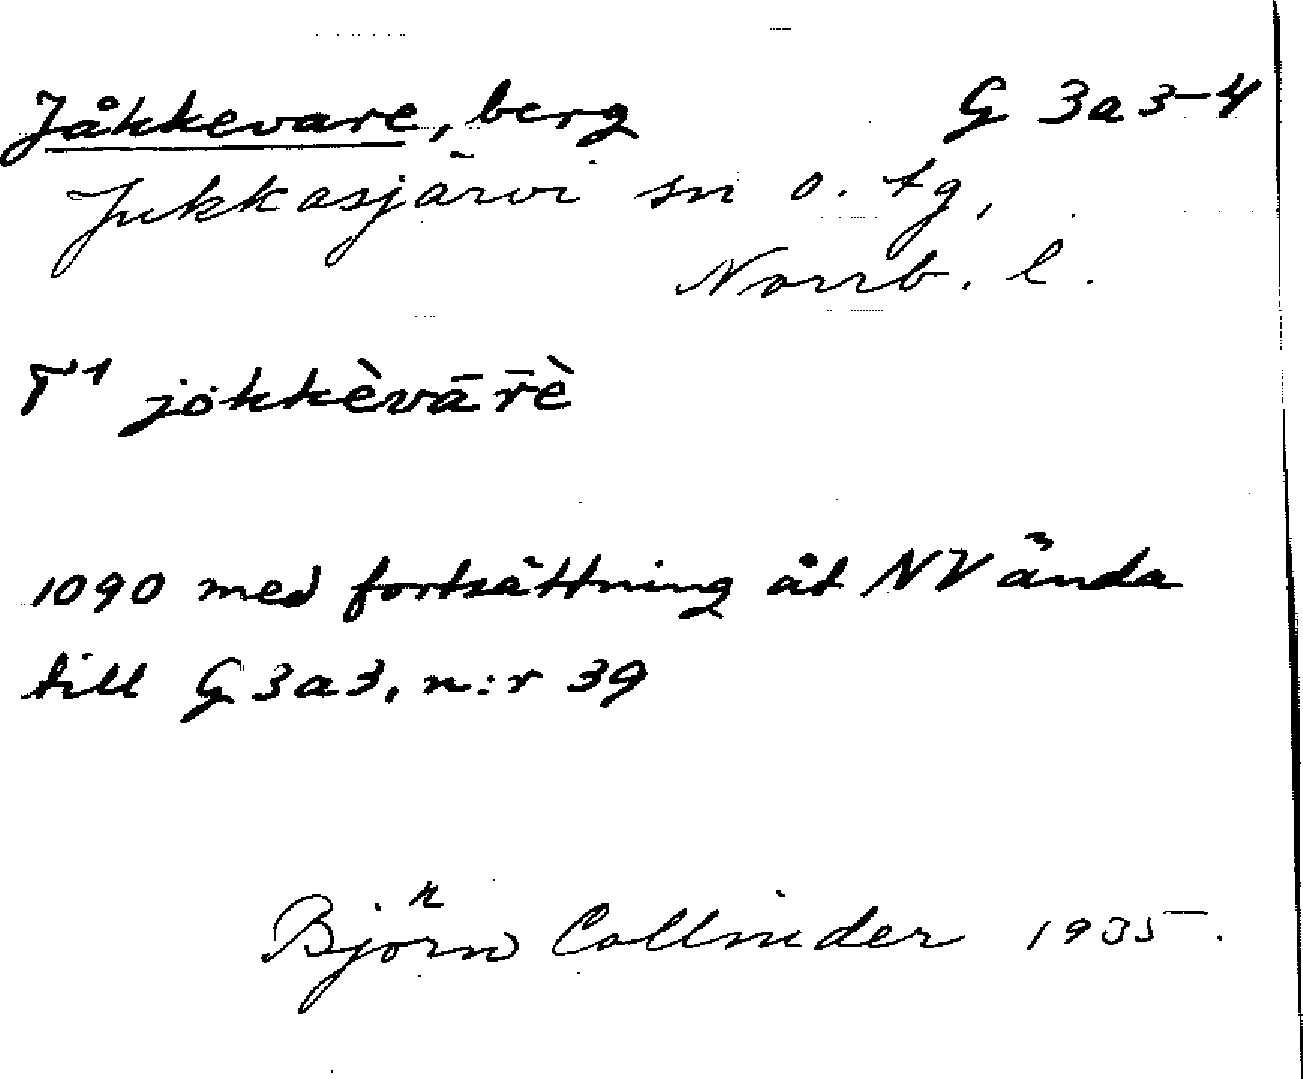 Jåkkevare, berg G 3a3-4
Jukkasjärvi sn o. tg,
Norrb. l.
T¹ jòkkèvārè̄
1090 med fortsättning åt NV ända
till G 3a3, n:r 39
Björn Collinder 1935.